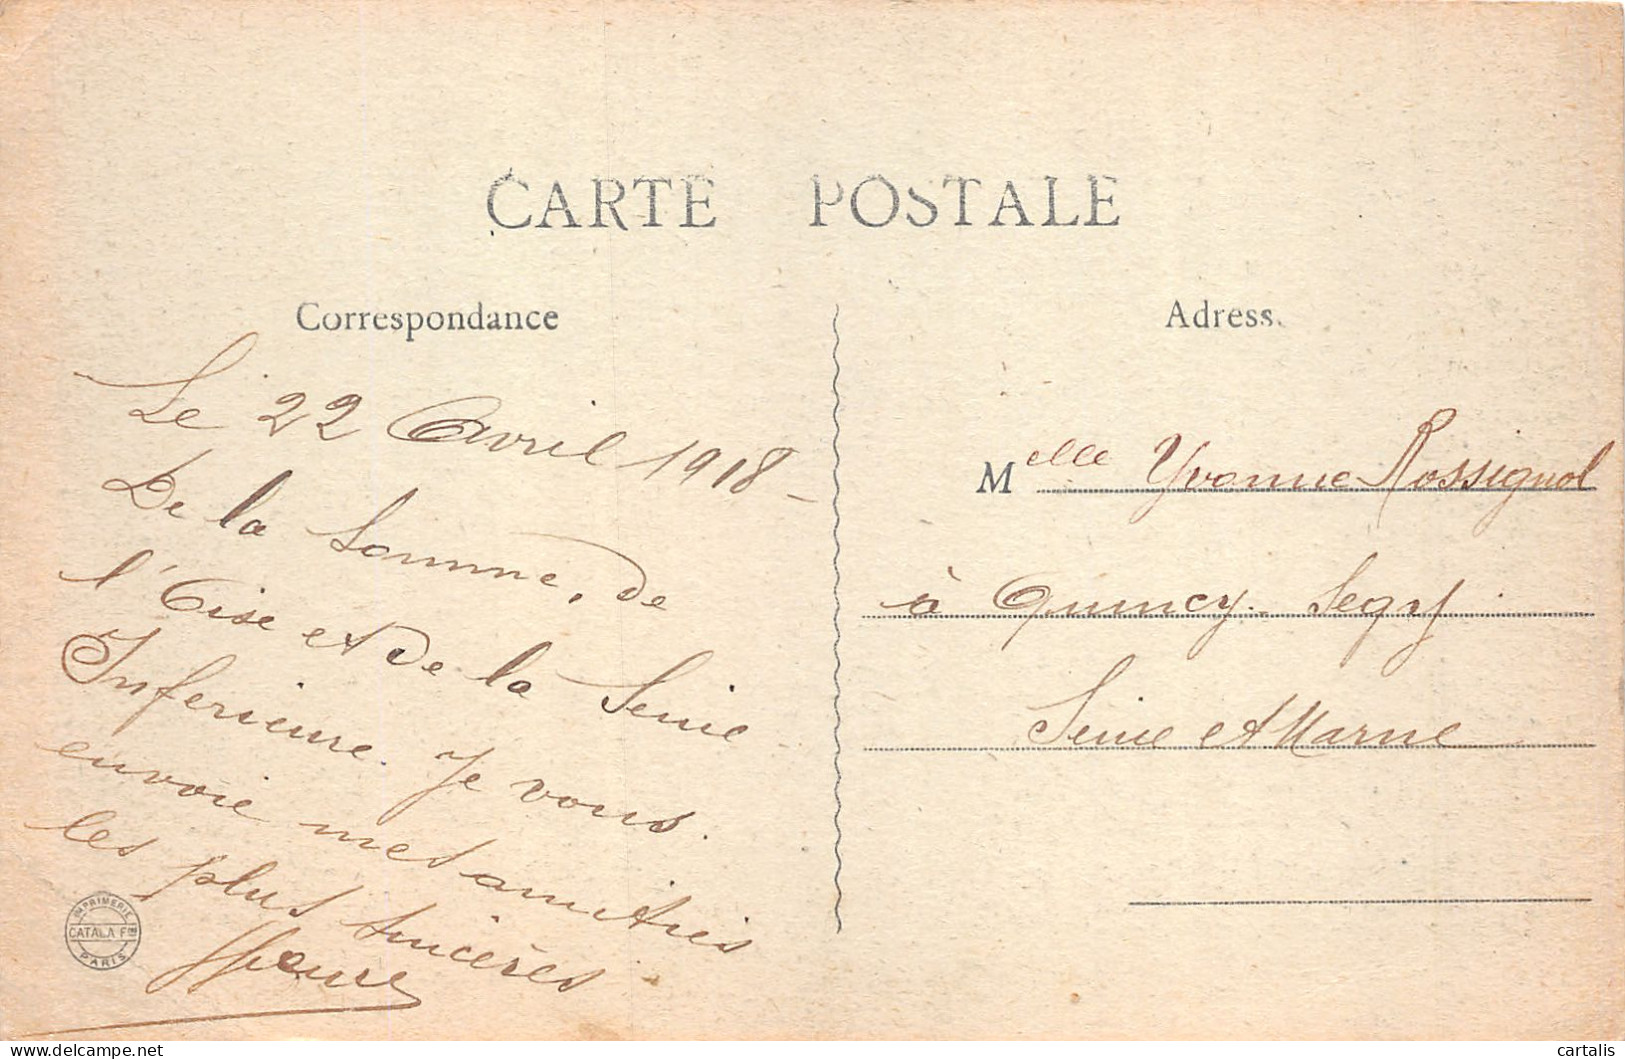 CARTE POSTALE
Correspondance
Le 22 Avril 1918 -
De la Somme, de
l'Oise et de la Seine
Inferieure. Je vous
envoie mes amitiés
les plus sincères
Adress.
Melle Yvonne Rossignol
à Quincy-Segy
Seine et Marne
IMPRIMERIE
CATALA Fres
PARIS
delcampe.net
cartalis